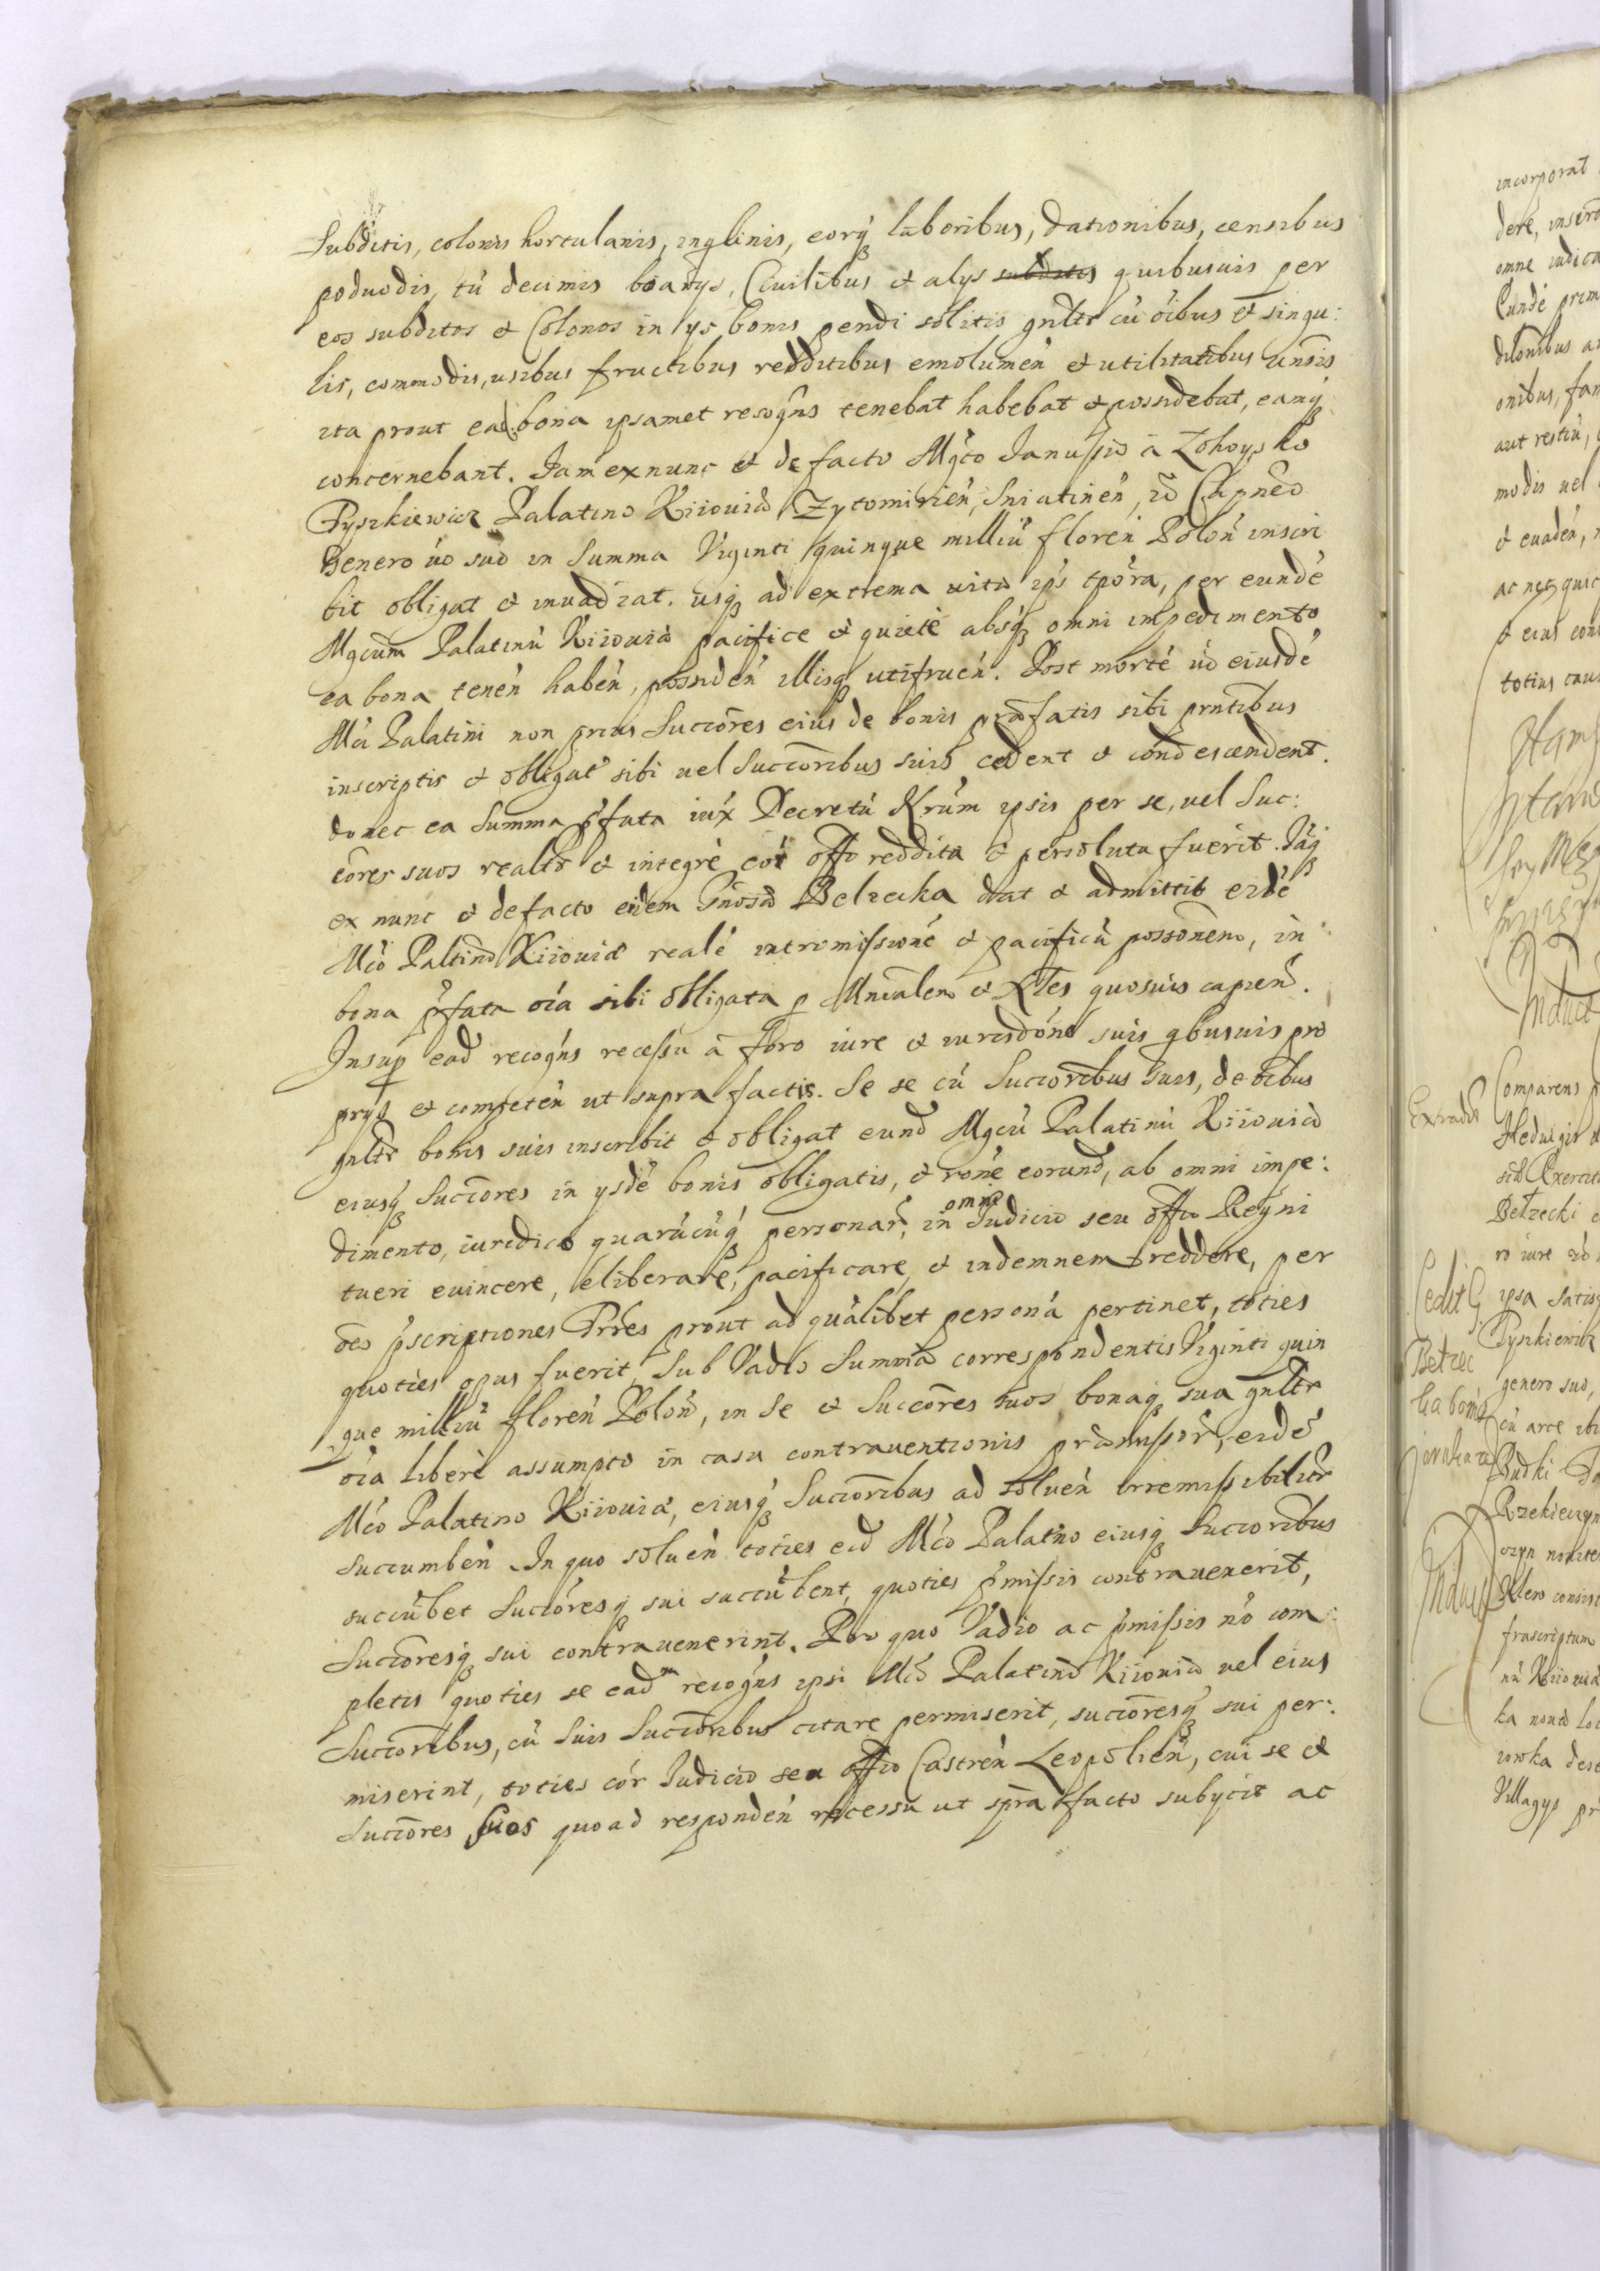 Subditis, colonis hortulanis, inqlinis, eorq̃ laboribus, dationibus, censibus
poduodis, tũ decimis boarys, Ciuilibus et alys subditis quibusuis per
eos subditos et Colonos in ys bonis pendi solitis gnltr cũ oibus et singu:
lis, commodis, usibus fructibus redditibus emolumen et utilitatibus
ita prout ead bona ipsamet recogns tenebat habebat et possidebat, eamq̃
concernebant. Iam ex nunc et de facto Mgco Ianussio a Lohoysko
Tyszkiewicz Palatino Kiiouiæ Zytomirien, Sniatinen, Capneo
Genero uo suo in Summa Viginti quinque milliũ floren Polon inscri
bit obligat et inuadiat. usq̃ ad extrema uitæ ips tpora, per eundẽ
Mgcum Palatinũ Kiiouiæ pacifice et quiete absq̃ omni impedimento
ea bona tenen haben, possiden illisq̃ utifruen. Post mortẽ uo eiusdẽ
Mci Palatini non prius Succores eius de bonis præfatis sibi prntibus
inscriptis et obligat sibi uel Succoribus suis cedent et condescendent.
donec ea Summa pfata iux Decretũ Krum ipsis per se, uel Suc:
cores suos realtr et integre cor offo reddita et persoluta fuerit. Iaq̃
ex nunc et de facto eidem Gnosa Belzecka dat et admittit eidẽ
Mco Paltino Kiiouiæ realẽ intromissionẽ et pacificũ possonem, in
bona pfata oia sibi obligata p Mnialem et Nles quosuis capien.
Insup ead recogns recessu a foro iure et iurisdone suis qbusuis pro
prys et competen ut supra factis. Se se cũ Succoribus suis, de oibus
gnltr bonis suis inscribit et obligat eund Mgcũ Palatinũ Kiiouiæ
eiusq̃ Succores in ysdẽ bonis obligatis, et rone eorund, ab omni impe:
dimento, iuridico quarũcũq̃ personar, in omni Iudicio seu offo Regni
tueri euincere, eliberare, pacificare, et indemnem reddere, per
oes pscriptiones Trres prout ad quãlibet personã pertinet, toties
quoties opus fuerit, Sub Vadio Summæ correspondentis Viginti quin
que milliũ floren Polon, in Se et Succores suos bonaq̃ sua gnltr
oia libere assumpto in casu contrauentionis præmissor, eidẽ
Mco Palatino Kiiouiæ, eiusq̃ Succoribus ad soluen irremissibilitr
succumben. In quo soluen toties eid Mco Palatino eiusq̃ Succoribus
succũbet Succoresq̃ sui succũbent, quoties pmissis contrauenerit,
Succoresq̃ sui contrauenerint. Pro quo Vadio ac pmissis no com:
pletis quoties se ead recogns ipsi Mco Palatino Kiiouiæ uel eius
Succoribus, cũ Suis Succoribus citare permiserit, succoresq̃ sui per:
miserint, toties cor Iudicio seu offo Castren Leopolien, cui se et
Succores suos quoad responden recessu ut spra facto subycit ac

incorporat
dere, inscri
omne iudica
Eundẽ prem
ditionibus
onibus, fam
aut restiu,
modis uel
et euaden,
ac neq̃ quic
et eius con
totius caus
Induct
Extrad
Comparens
Heduigis
Belzecki
ro iure
ipsa satis
Cedit G
Belzec
ka bona
Tyszkiewicz
genero suo,
cũ arce ibi
Budki
Rzekieczyn
czyn nouite
Klero consist
frascriptum
nũ Kiiouiæ
ka nouo loc
Villagys pr